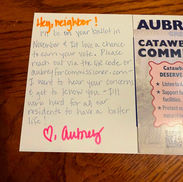 Hey, neighbor!
I'll be on your ballot in
November & I'd love a chance
to earn your vote. Please
reach out via the QR code or
aubreyforcommissioner.com-
I want to hear your concerns
& get to know you - I'll
work hard for all our
residents to have a better
life!
♡, Aubrey
AUBR
CATAWB
COMM
Catawb
DESERVE
Listen to
Support f
facilities.
Protect o